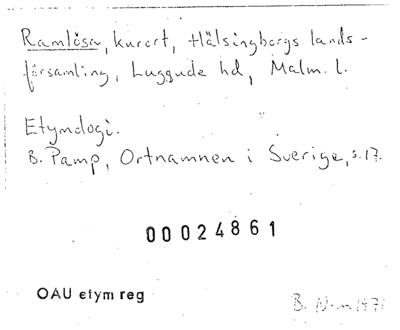 Ramlösa, kurort, Hälsingborgs lands-
församling, Luggude hd, Malm. l.
Etymologi.
B. Pamp, Ortnamnen i Sverige, s. 17.
00024861
OAU etym reg
B. 1971